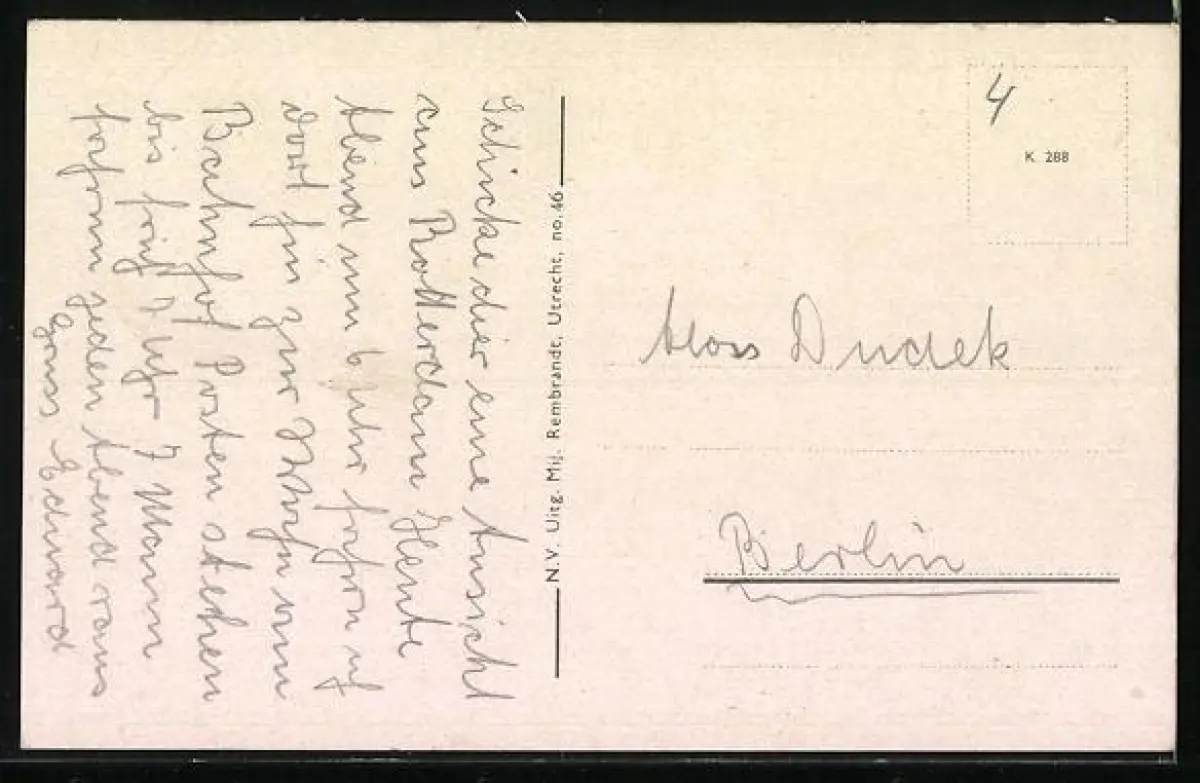 Schicke dier eine Ansicht
aus Rotterdam Heute
Abend um 6 Uhr fahren
dort hin zur Wache am
Bahnhof Posten stehen
bis früh 7 Uhr 7 Mann
fahren jeden Abend raus
Gruss Eduard
N.V. Uitg. Mij. Rembrandt, Utrecht, no. 46
4
K 288
Alois Dudek
Berlin